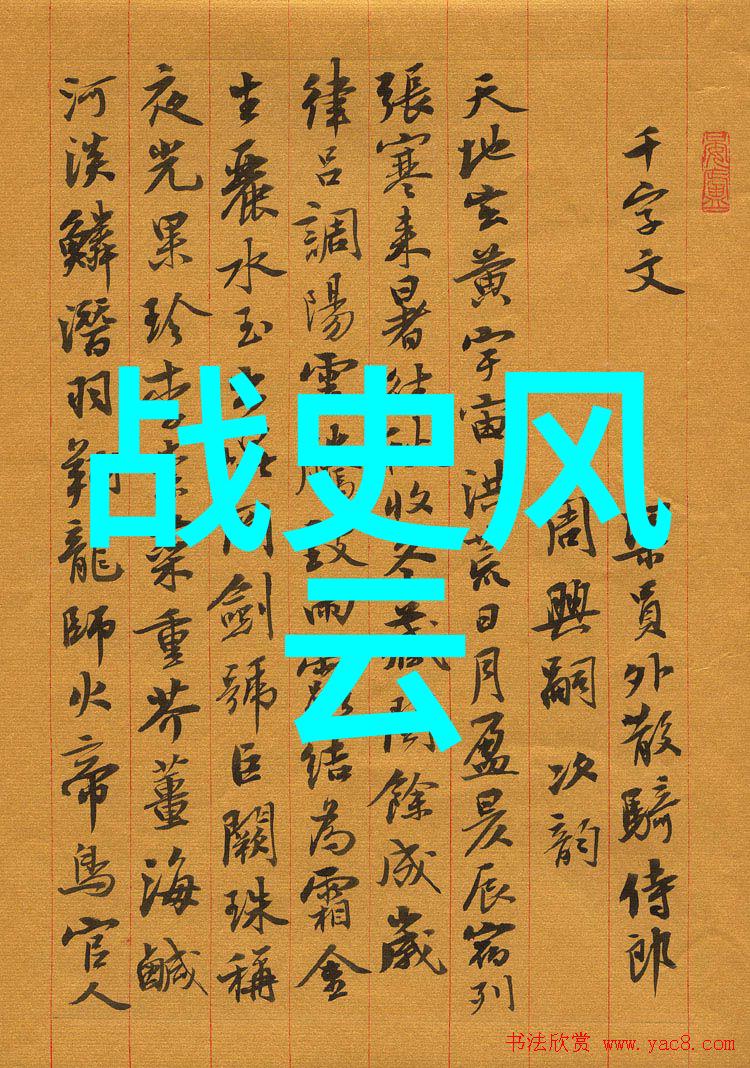 千字文 梁員外散騎侍郎
周興嗣次韵
天地玄黄宇宙洪荒日月盈昃辰宿列
張寒来暑往秋收冬藏閏餘成歲
律呂調陽雲騰致雨露結為霜金
生麗水玉出崑岡劍號巨闕珠稱
夜光果珍李柰菜重芥薑海鹹
河淡鱗潛羽翔龍師火帝鳥官人
战史风
云
书法欣赏 www.yac8.com